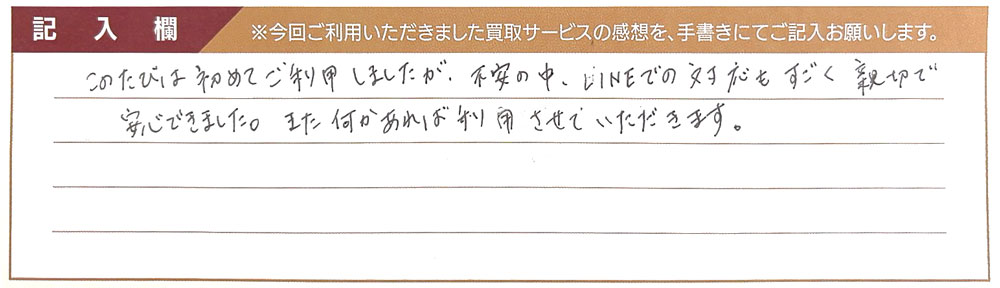 記入欄
※今回ご利用いただきました買取サービスの感想を、手書きにてご記入お願いします。
このたびは初めてご利用しましたが、不安の中、LINEでの対応もすごく親切で
安心できました。また何かあれば利用させていただきます。